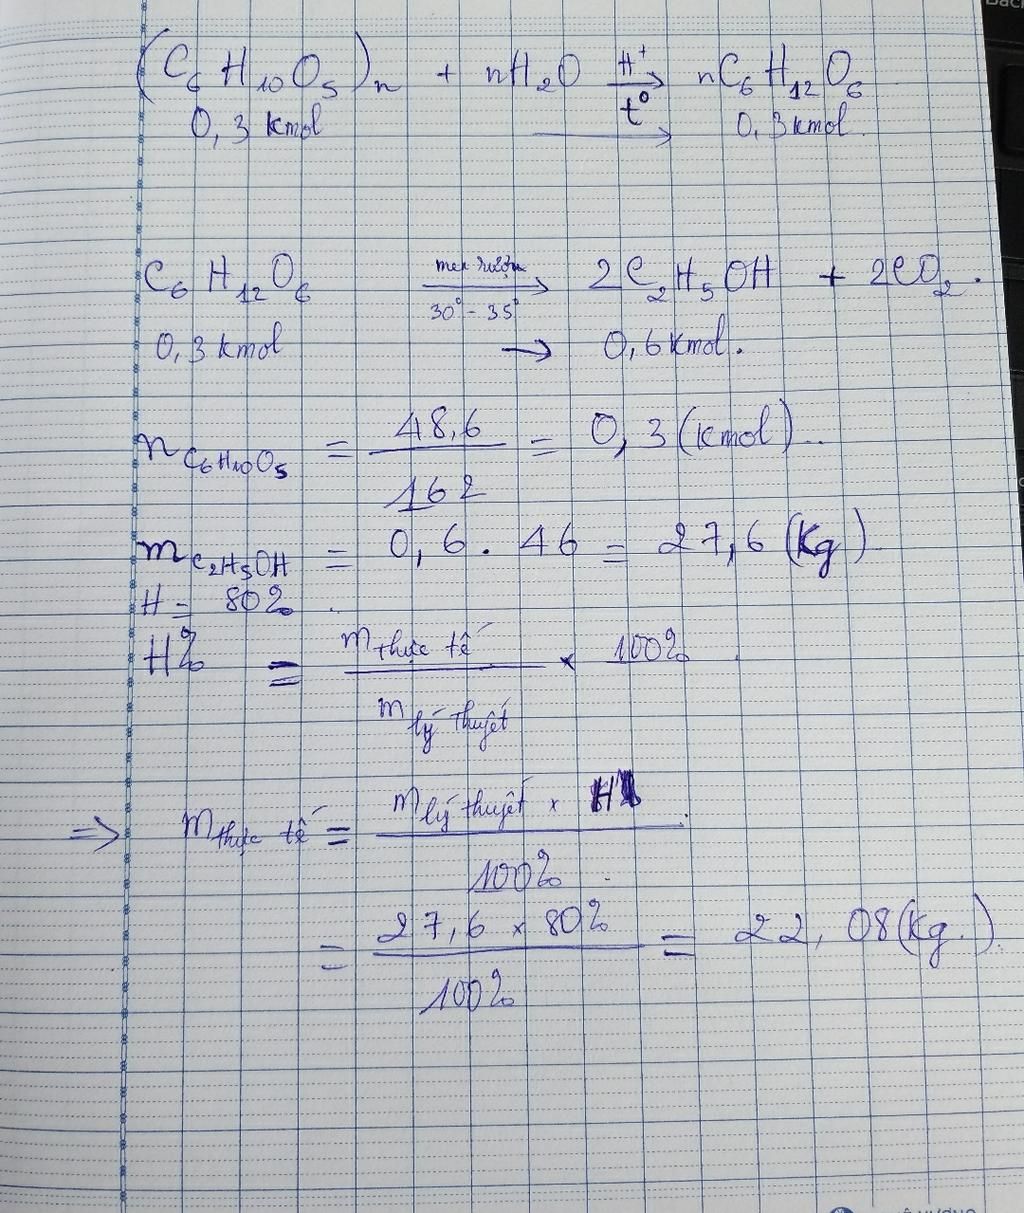 (C₆H₁₀O₅)ₙ + nH₂O H⁺ → t⁰ nC₆H₁₂O₆
0,3 kmol → 0,3 kmol.
C₆H₁₂O₆ men rượu → 30⁰ - 35⁰ 2C₂H₅OH + 2CO₂.
0,3 kmol → 0,6 kmol.
n C₆H₁₀O₅ = 48,6 / 162 = 0,3 (kmol)..
m C₂H₅OH = 0,6 . 46 = 27,6 (Kg)
H = 80%
H% = m thực tế / m lý thuyết × 100%
=> m thực tế = m lý thuyết × H / 100%
= 27,6 × 80% / 100% = 22,08 (Kg.)